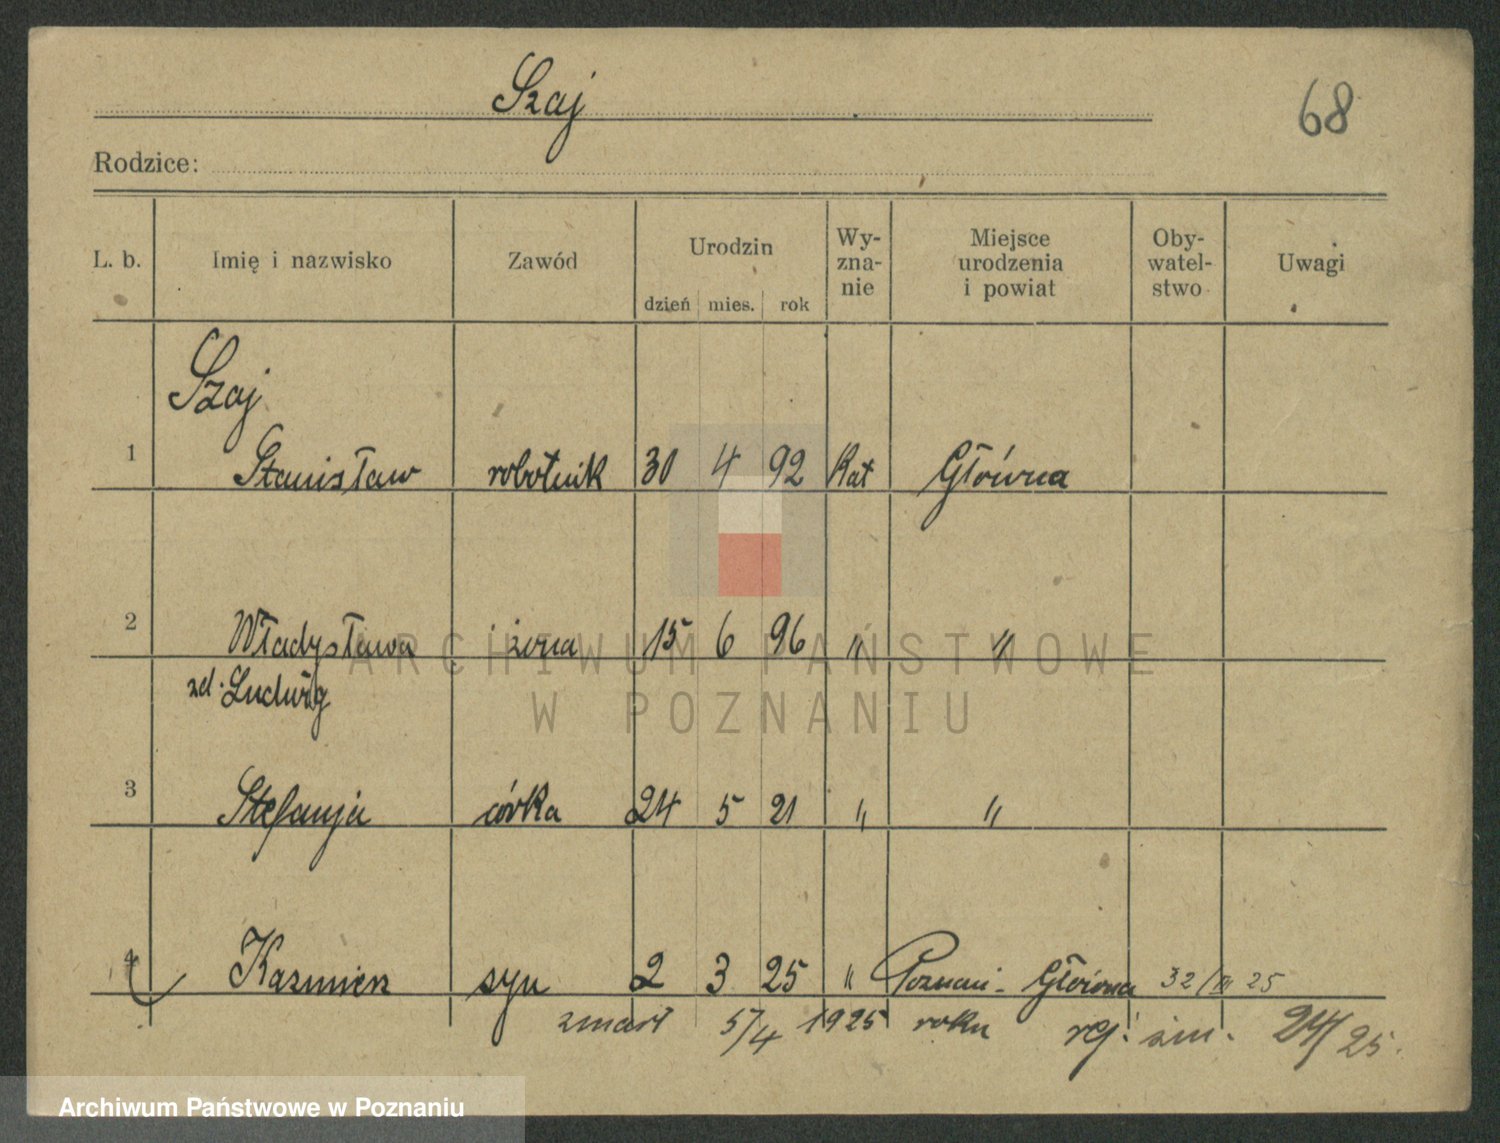 Szaj
68
Rodzice:
L. b. Imię i nazwisko Zawód Urodzin dzień mies. rok Wy-zna-nie Miejsce urodzenia i powiat Oby-watel-stwo Uwagi
Szaj
1 Stanisław robotnik 30 4 92 Kat Główna
2 Władysława żona 15 6 96 " "
zd. Ludwig
3 Stefanja córka 24 5 21 " "
4 Kazimierz syn 2 3 25 " Poznań - Główna 32/III 25
zmarł 5/4 1925 roku rej. zm. 24/25.
ARCHIWUM PAŃSTWOWE
W POZNANIU
Archiwum Państwowe w Poznaniu